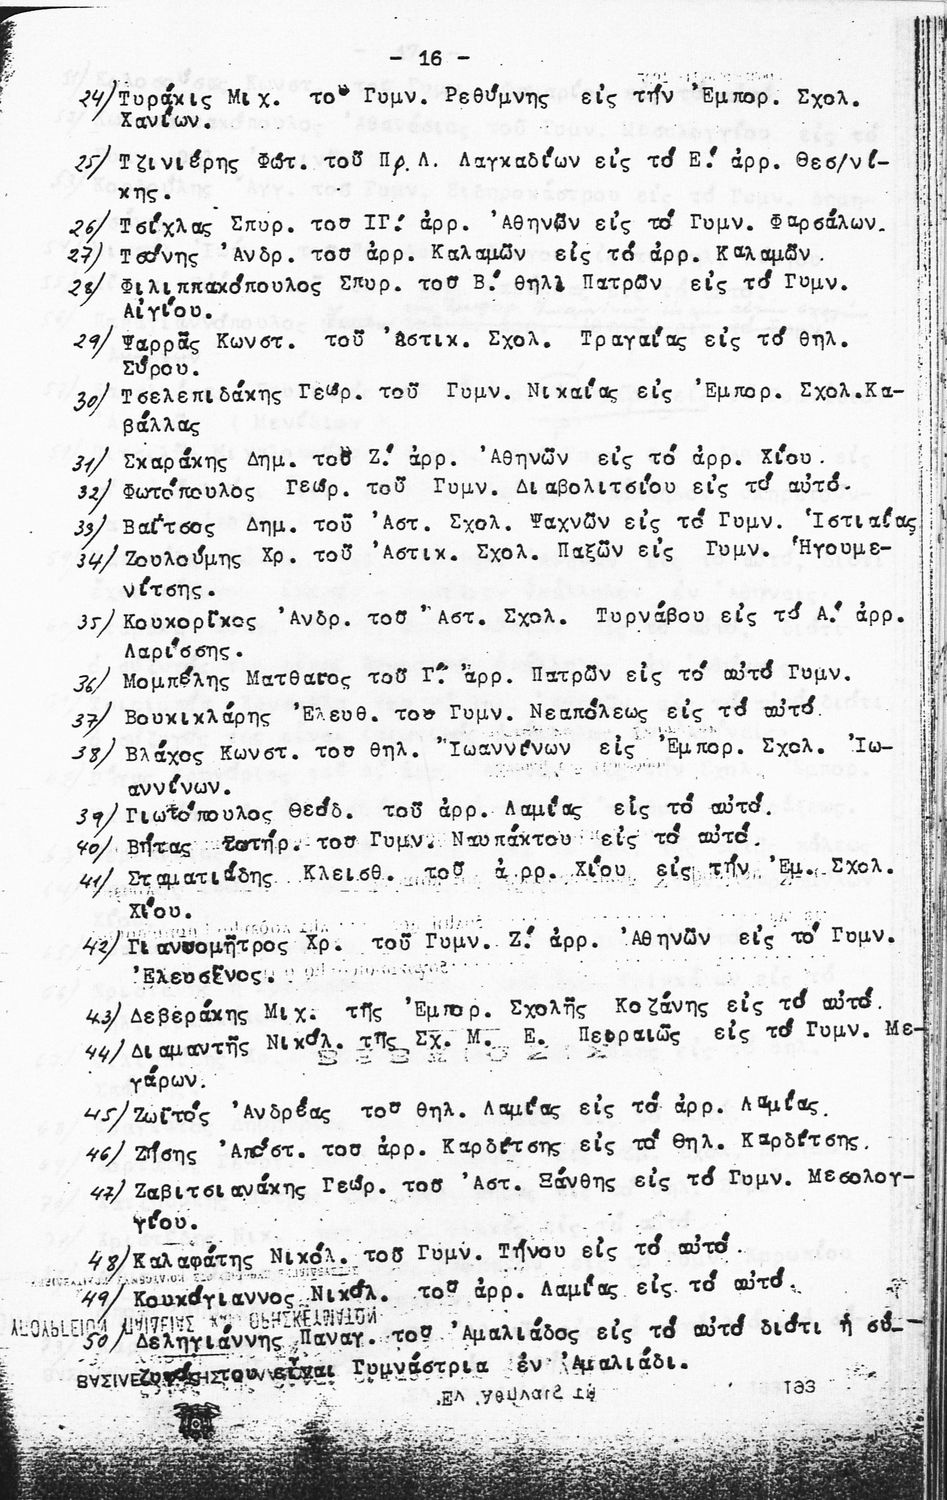 - 16 -
24/ Τυράκις Μιχ. τοῦ Γυμν. Ρεθύμνης εἰς τήν Ἐμπορ. Σχολ.
Χανίων.
25/ Τζινιέρης Φωτ. τοῦ Πρ. Λ. Λαγκαδίων εἰς τό Ε.΄ ἀρρ. Θεσ/νί-
κης.
26/ Τσίχλας Σπυρ. τοῦ ΙΓ.΄ ἀρρ. Ἀθηνῶν εἰς τό Γυμν. Φαρσάλων.
27/ Τσόνης Ἀνδρ. τοῦ ἀρρ. Καλαμῶν εἰς τό ἀρρ. Καλαμῶν.
28/ Φιλιππακόπουλος Σπυρ. τοῦ Β.΄ θηλ. Πατρῶν εἰς τό Γυμν.
Αἰγίου.
29/ Ψαρρᾶς Κωνστ. τοῦ Ἀστικ. Σχολ. Τραγαίας εἰς τό θηλ.
Σύρου.
30/ Τσελεπιδάκης Γεώρ. τοῦ Γυμν. Νικαίας εἰς Ἐμπορ. Σχολ.Κα-
βάλλας
31/ Σκαράκης Δημ. τοῦ Ζ.΄ ἀρρ. Ἀθηνῶν εἰς τό ἀρρ. Χίου.
32/ Φωτόπουλος Γεώρ. τοῦ Γυμν. Διαβολιτσίου εἰς τό αὐτό.
33/ Βαΐτσος Δημ. τοῦ Ἀστ. Σχολ. Ψαχνῶν εἰς τό Γυμν. Ἱστιαίας
34/ Ζουλούμης Χρ. τοῦ Ἀστικ. Σχολ. Παξῶν εἰς Γυμν. Ἡγουμε-
νίτσης.
35/ Κουκορίκος Ἀνδρ. τοῦ Ἀστ. Σχολ. Τυρνάβου εἰς τό Α.΄ ἀρρ.
Λαρίσσης.
36/ Μομπέλης Ματθαῖος τοῦ Γ.΄ ἀρρ. Πατρῶν εἰς τό αὐτό Γυμν.
37/ Βουκικλάρης Ἐλευθ. τοῦ Γυμν. Νεαπόλεως εἰς τό αὐτό.
38/ Βλάχος Κωνστ. τοῦ θηλ. Ἰωαννίνων εἰς Ἐμπορ. Σχολ. Ἰω-
αννίνων.
39/ Γιωτόπουλος Θεόδ. τοῦ ἀρρ. Λαμίας εἰς τό αὐτό.
40/ Βήτας Σωτήρ. τοῦ Γυμν. Ναυπάκτου εἰς τό αὐτό.
41/ Σταματιάδης Κλεισθ. τοῦ ἀ.ρρ. Χίου εἰς τήν Ἐμ. Σχολ.
Χίου.
42/ Γιαννομῆτρος Χρ. τοῦ Γυμν. Ζ.΄ ἀρρ. Ἀθηνῶν εἰς τό Γυμν.
Ἐλευσῖνος.
43/ Δεβεράκης Μιχ. τῆς Ἐμπορ. Σχολῆς Κοζάνης εἰς τό αὐτό.
44/ Διαμαντῆς Νικόλ. τῆς Σχ. Μ. Ε. Πειραιῶς εἰς τό Γυμν. Με-
γάρων.
45/ Ζωϊτός Ἀνδρέας τοῦ θηλ. Λαμίας εἰς τό ἀρρ. Λαμίας.
46/ Ζήσης Ἀπόστ. τοῦ ἀρρ. Καρδίτσης εἰς τό θηλ. Καρδίτσης.
47/ Ζαβιτσιανάκης Γεώρ. τοῦ Ἀστ. Ξάνθης εἰς τό Γυμν. Μεσολογ-
γίου.
48/ Καλαφάτης Νικόλ. τοῦ Γυμν. Τήνου εἰς τό αὐτό.
49/ Κουκόγιαννος Νικόλ. τοῦ ἀρρ. Λαμίας εἰς τό αὐτό.
50/ Δεληγιάννης Παναγ. τοῦ Ἀμαλιάδος εἰς τό αὐτό διότι ἡ σύ-
ζυγός του εἶναι Γυμνάστρια ἐν Ἀμαλιάδι.